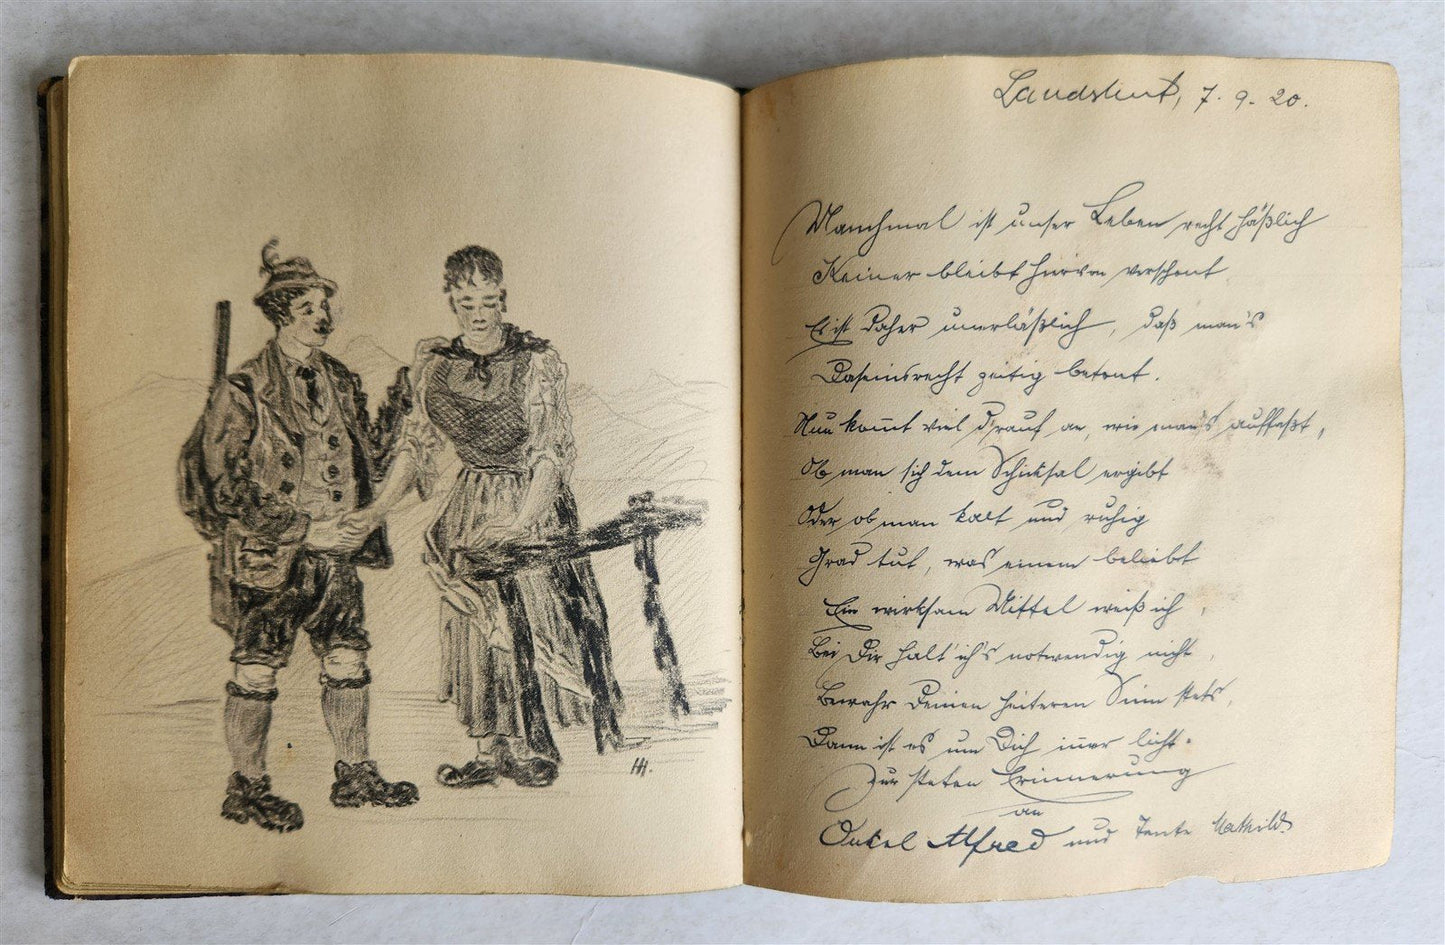 HH.
Landshut, 7. 9. 20.
Manchmal ist unser Leben recht häßlich
Keiner bleibt hiervon verschont
Es ist daher unerläßlich, daß man's
Daseinsrecht zeitig betont.
Nun kom̅t viel d'rauf an, wie man's auffaßt,
Ob man sich dem Schicksal ergibt
Oder ob man kalt und ruhig
Grad tut, was einem beliebt
Ein wirksam Mittel weiß ich,
Bei Dir halt' ich's notwendig nicht,
Bewahr Deinen heiteren Sinn stets,
Dann ist es um Dich im̅er licht.
Zur steten Erinnerung
an
Onkel Alfred und Tante Mathild.